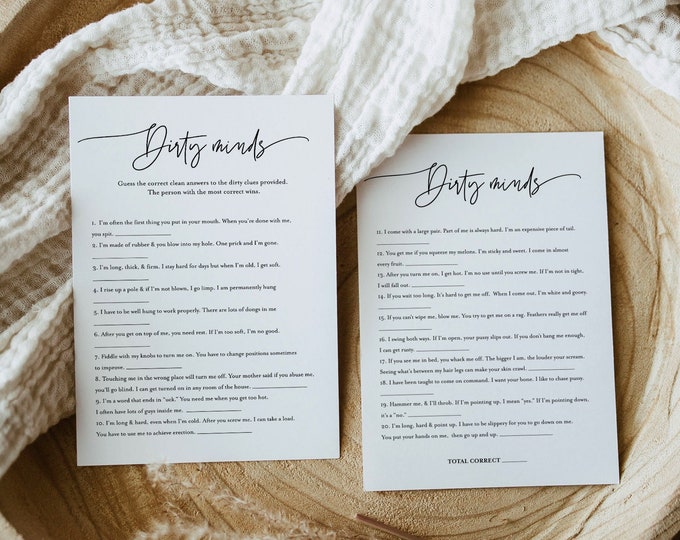 Dirty minds
Guess the correct clean answers to the dirty clues provided.
The person with the most correct wins.
1. I'm often the first thing you put in your mouth. When you're done with me,
you spit.
2. I'm made of rubber & you blow into my hole. One prick and I'm gone.
3. I'm long, thick, & firm. I stay hard for days but when I'm old. I get soft.
4. I rise up a pole & if I'm not blown, I go limp. I am permanently hung
5. I have to be well hung to work properly. There are lots of dongs in me
6. After you get on top of me, you need rest. If I'm too soft, I'm no good.
7. Fiddle with my knobs to turn me on. You have to change positions sometimes
to improve.
8. Touching me in the wrong place will turn me off. Your mother said if you abuse me,
you'll go blind. I can get turned on in any room of the house.
9. I'm a word that ends in "uck." You need me when you get too hot.
I often have lots of guys inside me.
10. I'm long & hard, even when I'm cold. After you screw me. I can take a load.
You have to use me to achieve erection.
Dirty minds
11. I come with a large pair. Part of me is always hard. I'm an expensive piece of tail.
12. You get me if you squeeze my melons. I'm sticky and sweet. I come in almost
every fruit.
13. After you turn me on. I get hot. I'm no use until you screw me. If I'm not in tight,
I will fall out.
14. If you wait too long. It's hard to get me off. When I come out. I'm white and gooey.
15. If you can't wipe me, blow me. You try to get me on a rag. Feathers really get me off
16. I swing both ways. If I'm open, your pussy slips out. If you don't bang me enough,
I can get rusty.
17. If you see me in bed, you whack me off. The bigger I am, the louder your scream.
Seeing what's between my hair legs can make your skin crawl.
18. I have been taught to come on command. I want your bone. I like to chase pussy.
19. Hammer me, & I'll throb. If I'm pointing up. I mean "yes." If I'm pointing down.
it's a "no."
20. I'm long, hard & point up. I have to be slippery for you to go down on me.
You put your hands on me, then go up and up.
TOTAL CORRECT